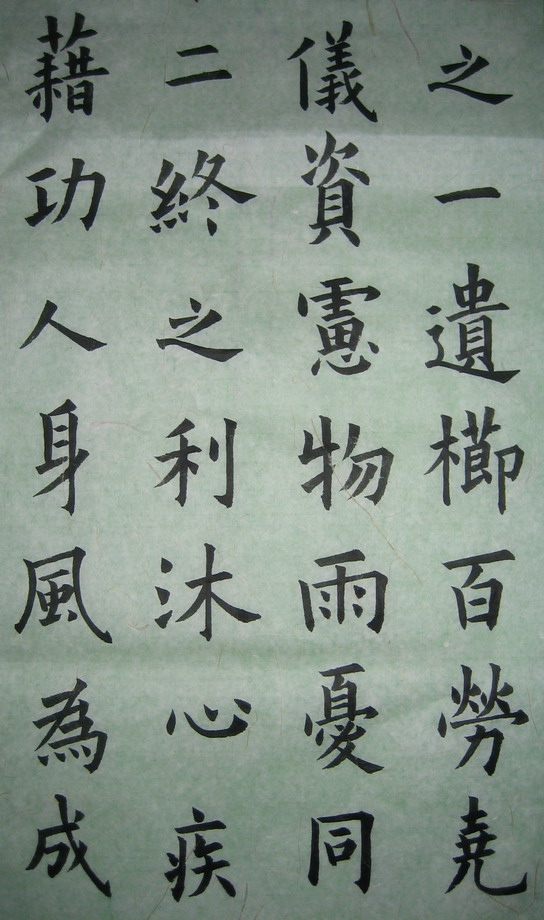 之一遺櫛百勞堯
儀資憲物雨憂同
二終之利沐心疾
藉功人身風為成